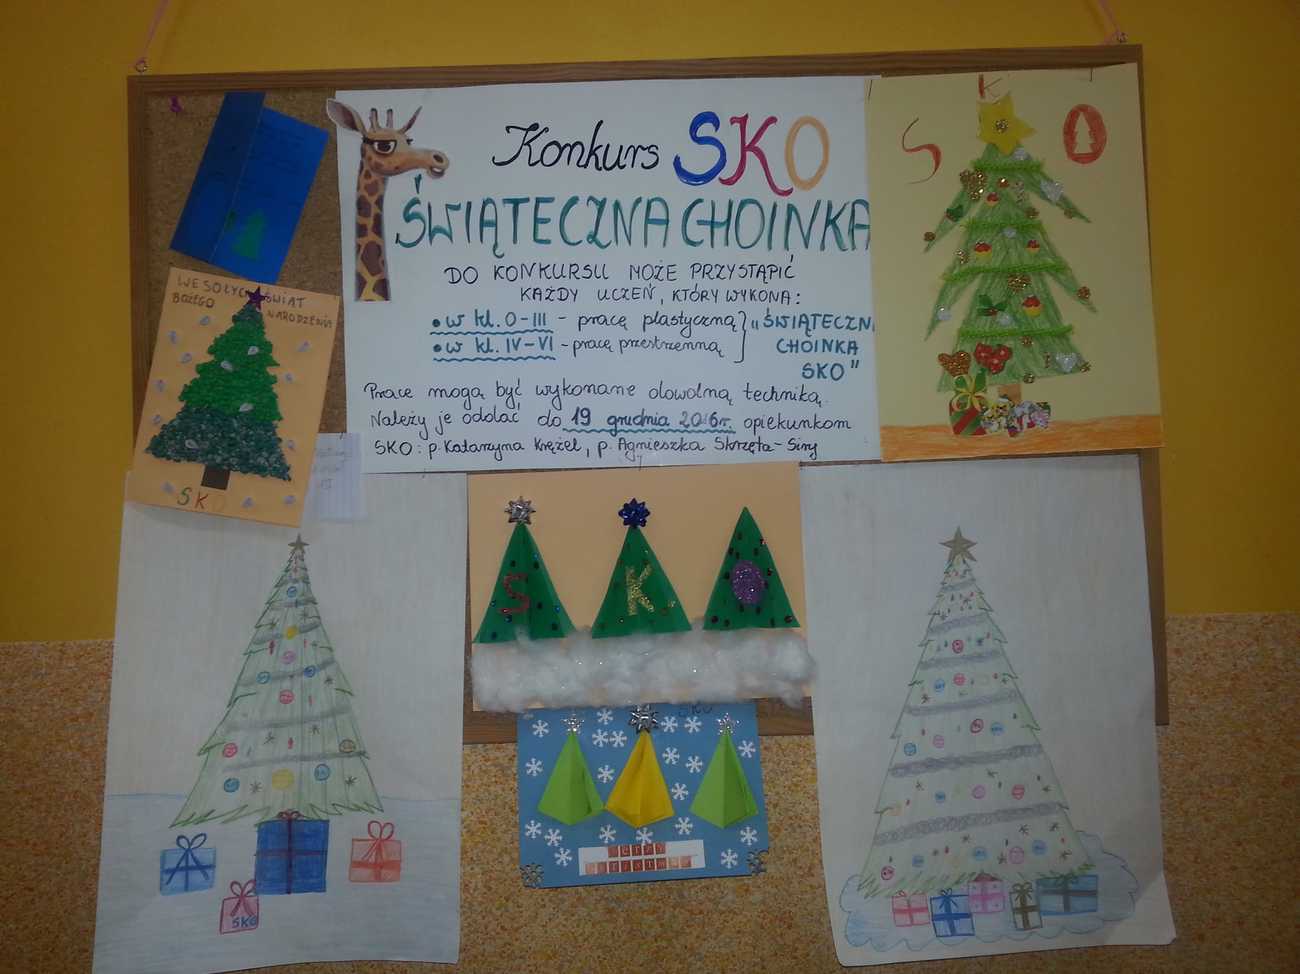 Konkurs SKO
ŚWIĄTECZNA CHOINKA
DO KONKURSU MOŻE PRZYSTĄPIĆ
KAŻDY UCZEŃ, KTÓRY WYKONA:
• w kl. 0-III - pracę plastyczną } "ŚWIĄTECZN
• w kl. IV-VI - pracę przestrzenną CHOINKA
SKO"
Prace mogą być wykonane dowolną techniką.
Należy je oddać do 19 grudnia 2016r. opiekunkom
SKO: p. Katarzyna Krężel, p. Agnieszka Skrzęta-Siry
S K O
WESOŁYCH ŚWIĄT
BOŻEGO NARODZENIA
SKO
S K O
SKO
MERRY
CHRISTMAS
SKO